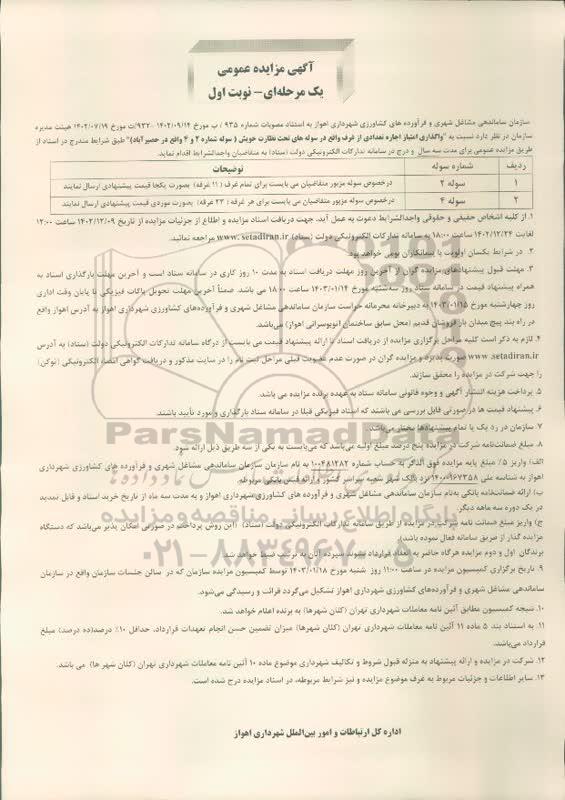 آگهی مزایده عمومی
یک مرحله‌ای - نوبت اول
سازمان ساماندهی مشاغل شهری و فرآورده های کشاورزی شهرداری اهواز به استناد مصوبات شماره ۹۳۵ / ب مورخ ۱۴۰۲/۰۹/۱۴ -۹۳۲/ت مورخ ۱۴۰۲/۰۷/۱۹ هیئت مدیره
سازمان در نظر دارد نسبت به "واگذاری امتیاز اجاره تعدادی از غرف واقع در سوله های تحت نظارت خویش ( سوله شماره ۲ و ۴ واقع در حصیرآباد)" طبق شرایط مندرج در اسناد از
طریق مزایده عمومی برای مدت سه سال و درج در سامانه تدارکات الکترونیکی دولت (ستاد) به متقاضیان واجدالشرایط اقدام نماید.
ردیف شماره سوله توضیحات
۱ سوله ۲ درخصوص سوله مزبور متقاضیان می بایست برای تمام غرف ( ۱۱ غرفه) بصورت یکجا قیمت پیشنهادی ارسال نمایند
۲ سوله ۴ درخصوص سوله مزبور متقاضیان می بایست برای هر غرفه ( ۲۳ غرفه) بصورت موردی قیمت پیشنهادی ارسال نمایند
۱. از کلیه اشخاص حقیقی و حقوقی واجدالشرایط دعوت به عمل آید، جهت دریافت اسناد مزایده و اطلاع از جزئیات مزایده از تاریخ ۱۴۰۲/۱۲/۰۹ ساعت ۱۲:۰۰
لغایت ۱۴۰۲/۱۲/۲۴ ساعت ۱۸:۰۰ به سامانه تدارکات الکترونیکی دولت (ستاد) www.setadiran.ir مراجعه نمائید.
۲. در شرایط یکسان اولویت با پیمانکاران بومی خواهد بود.
۳. مهلت قبول پیشنهادهای مزایده گران از آخرین روز مهلت دریافت اسناد به مدت ۱۰ روز کاری در سامانه ستاد است و آخرین مهلت بارگذاری اسناد به
همراه پیشنهاد قیمت در سامانه ستاد روز سه شنبه مورخ ۱۴۰۳/۰۱/۱۴ ساعت ۱۸:۰۰ می باشد. ضمناً آخرین مهلت تحویل پاکات فیزیکی تا پایان وقت اداری
روز چهارشنبه مورخ ۱۴۰۳/۰۱/۱۵ به دبیرخانه محرمانه حراست سازمان ساماندهی مشاغل شهری و فرآورده‌های کشاورزی شهرداری اهواز به آدرس اهواز واقع
در راه بند پیچ میدان بار فروشان قدیم (محل سابق ساختمان اتوبوسرانی اهواز) می‌باشد.
۴. لازم به ذکر است کلیه مراحل برگزاری مزایده از دریافت اسناد تا ارائه پیشنهاد قیمت می بایست از درگاه سامانه تدارکات الکترونیکی دولت (ستاد) به آدرس
www.setadiran.ir صورت پذیرد و مزایده گران در صورت عدم عضویت قبلی مراحل ثبت نام را در سایت مذکور و دریافت گواهی امضاء الکترونیکی (توکن)
را جهت شرکت در مزایده را محقق سازند.
۵. پرداخت هزینه انتشار آگهی و وجوه قانونی سامانه ستاد به عهده برنده مزایده می باشد.
۶. پیشنهاد قیمت ها در صورتی قابل بررسی می باشند که اسناد فیزیکی قبلا در سامانه ستاد بارگذاری و مورد تأیید باشند.
۷. سازمان در رد یک یا تمام پیشنهادها مختار می‌باشد.
۸. مبلغ ضمانت‌نامه شرکت در مزایده پنج درصد مبلغ اولیه می‌باشد که می‌بایست به یکی از سه طریق ذیل ارائه شود.
الف) واریز ۵٪ مبلغ پایه مزایده فوق الذکر به حساب شماره ۱۰۰۴۸۱۲۸۲ به نام سازمان ساماندهی مشاغل شهری و فرآورده های کشاورزی شهرداری
اهواز به شناسه ملی ۱۴۰۰۰۹۶۷۳۵۸ نزد بانک شهر شعبه سراسر کشور و ارائه فیش بانکی مربوطه
ب) ارائه ضمانتنامه بانکی به‌نام سازمان ساماندهی مشاغل شهری و فرآورده های کشاورزی شهرداری اهواز و به مدت سه ماه از تاریخ خرید اسناد و قابل تمدید
در یک دوره سه ماهه دیگر.
ج) واریز مبلغ ضمانت نامه شرکت در مزایده از طریق سامانه تدارکات الکترونیکی دولت (ستاد) (این روش پرداخت در صورتی امکان پذیر می‌باشد که دستگاه
مزایده گذار از طریق سامانه فعال نموده باشد)
برندگان اول و دوم مزایده هرگاه حاضر به انعقاد قرارداد نشوند سپرده آنان به ترتیب ضبط خواهد شد.
۹. تاریخ برگزاری کمیسیون مزایده در ساعت ۱۱:۰۰ روز شنبه مورخ ۱۴۰۳/۰۱/۱۸ توسط کمیسیون مزایده سازمان که در سالن جلسات سازمان واقع در سازمان
ساماندهی مشاغل شهری و فرآورده‌های کشاورزی شهرداری اهواز تشکیل می‌گردد قرائت و رسیدگی می‌شود.
۱۰. نتیجه کمیسیون مطابق آئین نامه معاملات شهرداری تهران (کلان شهرها) به برنده اعلام خواهد شد.
۱۱. به استناد بند ۵ ماده ۱۱ آئین نامه معاملات شهرداری تهران (کلان شهرها) میزان تضمین حسن انجام تعهدات قرارداد، حداقل ۱۰٪ درصد(ده درصد) مبلغ
قرارداد می‌باشد.
۱۲. شرکت در مزایده و ارائه پیشنهاد به منزله قبول شروط و تکالیف شهرداری موضوع ماده ۱۰ آئین نامه معاملات شهرداری تهران (کلان شهر ها) می باشد.
۱۳. سایر اطلاعات و جزئیات مربوط به غرف موضوع مزایده و نیز شرایط مربوطه، در اسناد مزایده درج شده است.
اداره کل ارتباطات و امور بین‌الملل شهرداری اهواز
ParsNamadData
پایگاه اطلاع رسانی مناقصه و مزایده
۰۲۱-۸۸۳۴۹۶۷۰-۵